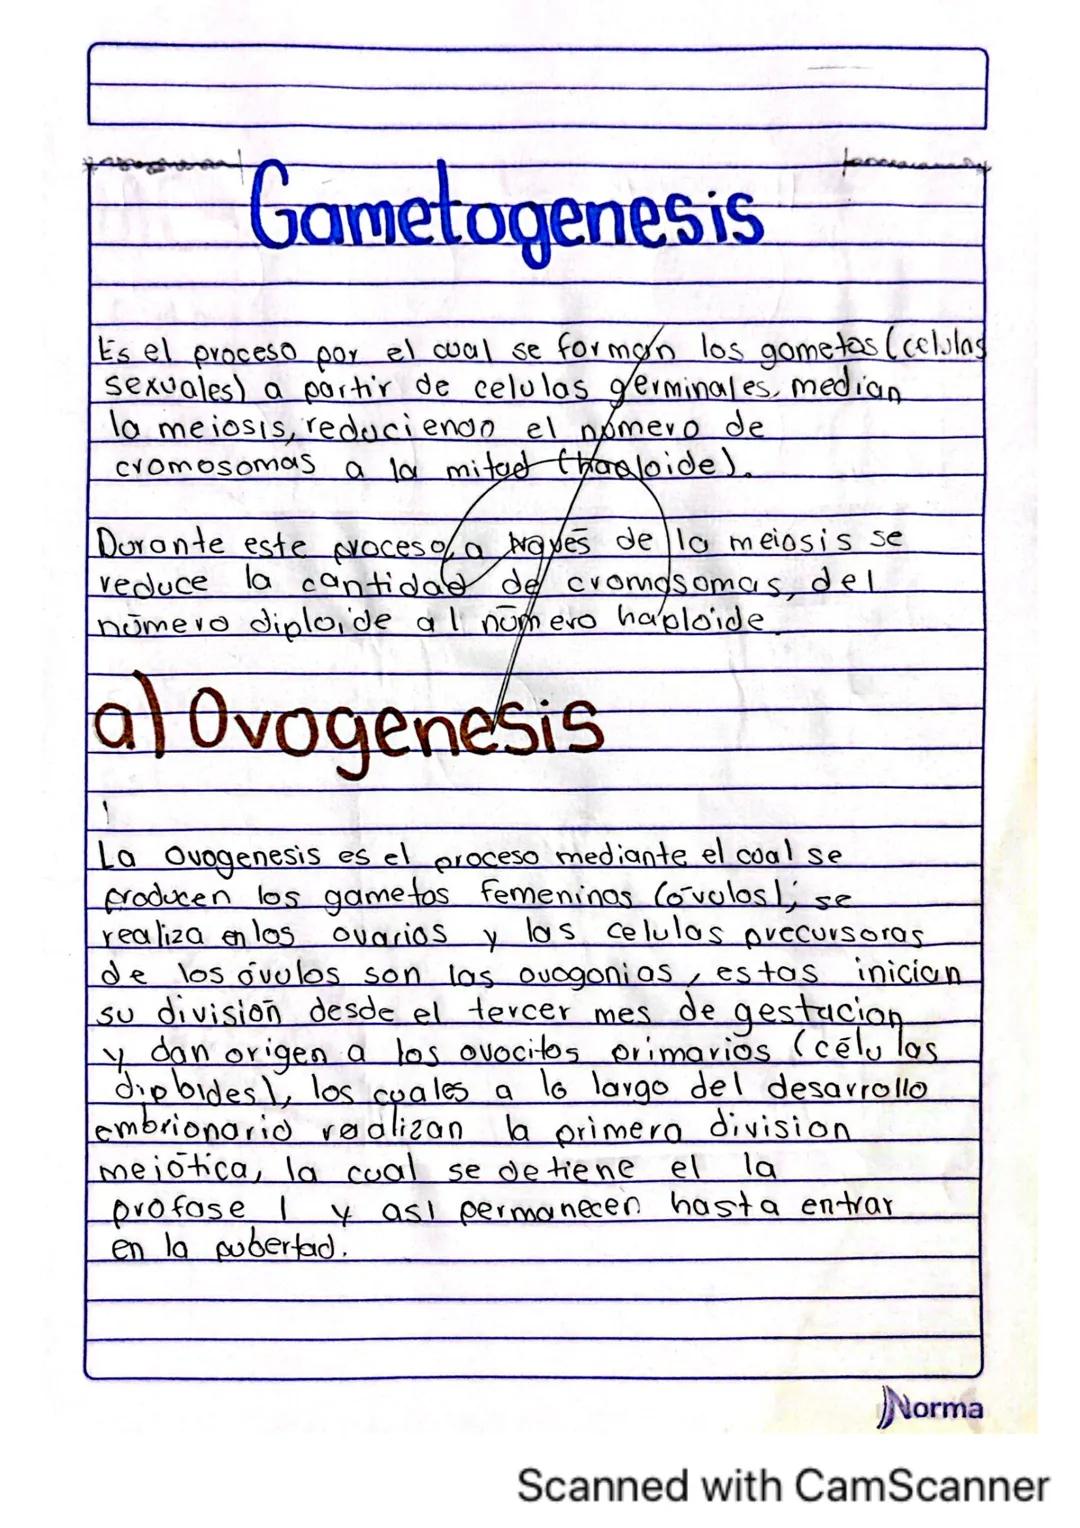 Gametogenesis
Es el proceso por el cual se forman los gametos (celulas
sexuales) a partir de celulas germinales, median
la meiosis, reduciendo el número de
cromosomas a la mitad (haploide).
Durante este proceso, a través de la meiosis se
reduce la cantidad de cromosomas, del
número diploide al número haploide.
a) Ovogenesis
La Ovogenesis es el proceso mediante el cual se
producen los gametos femeninos (óvulos); se
realiza en los ovarios y las celulas precursoras
de los óvulos son las ovogonias, estas inician
su división desde el tercer mes de gestacion
y dan origen a los ovocitos primarios (células
diploides), los cuales a lo largo del desarrollo
embrionario realizan la primera division
meiótica, la cual se detiene el la
profase I y asi permanecen hasta entrar
en la pubertad.
Norma
Scanned with CamScanner